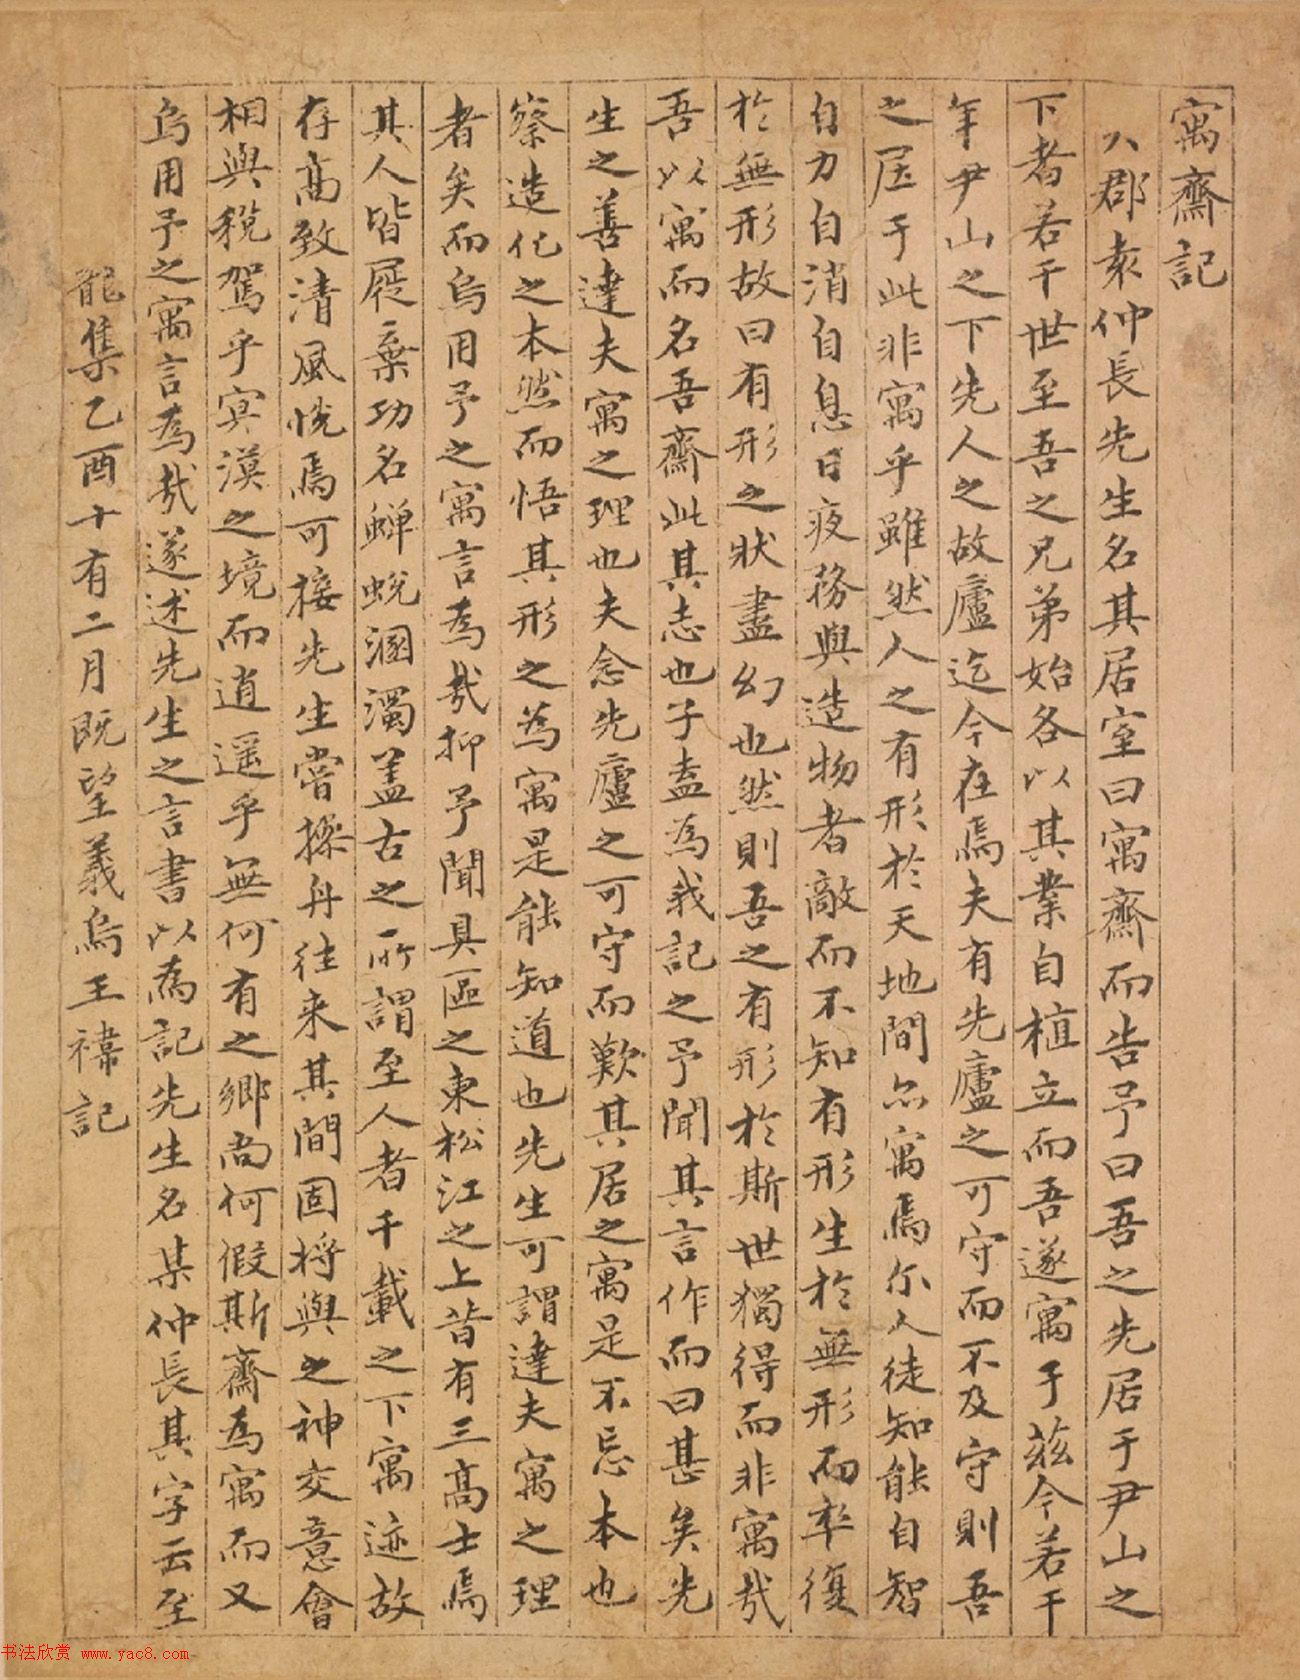 寓齋記
八郡袁仲長先生名其居室曰寓齋而告予曰吾之先居于尹山之
下者若干世至吾之兄弟始各以其業自植立而吾遂寓于茲今若干
年尹山之下先人之故廬迄今在焉夫有先廬之可守而不及守則吾
之居于此非寓乎雖然人之有形於天地間亦寓焉尔人徒知能自智
自力自消自息日夜務與造物者敵而不知有形生於無形而卒復
於無形故曰有形之狀盡幻也然則吾之有形於斯世獨得而非寓哉
吾以寓而名吾齋此其志也子盍為我記之予聞其言作而曰甚矣先
生之善達夫寓之理也夫念先廬之可守而歎其居之寓是不忘本也
察造化之本然而悟其形之為寓是能知道也先生可謂達夫寓之理
者矣而烏用予之寓言為哉抑予聞具區之東松江之上昔有三高士焉
其人皆屣棄功名蟬蛻溷濁盖古之所謂至人者千載之下寓迹故
存高致清風恍焉可接先生嘗操舟往来其間固將與之神交意會
相與稅駕乎冥漠之境而逍遥乎無何有之鄉尚何假斯齋為寓而又
烏用予之寓言為哉遂述先生之言書以為記先生名某仲長其字云至
龍集乙酉十有二月既望義烏王禕記
书法欣赏 www.yac8.com